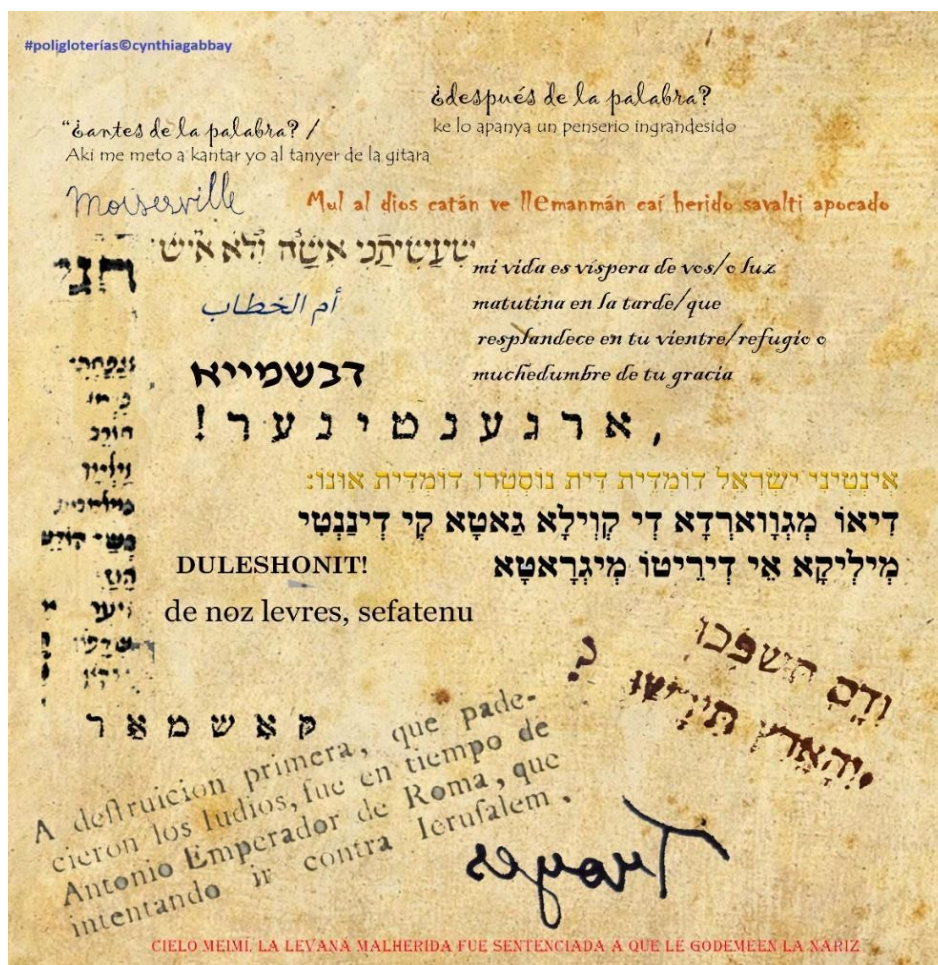 #poligloterías©cynthiagabbay
¿después de la palabra?
ke lo apanya un penserio ingrandesido
“¿antes de la palabra? /
Aki me meto a kantar yo al tanyer de la gitara
Moiserville
Mul al dios catán ve llemanmán caí herido savalti apocado
שֶׁעֲשִׂיתַנִי אִשָּׁה וְלֹא אִישׁ
mi vida es víspera de vos/o luz
matutina en la tarde/que
resplandece en tu vientre/refugio o
muchedumbre de tu gracia
أم الخطاب
דבשמייא
ארגענטינער!,
אִינְטִינִי יִשְׂרָאֵל דוֹמְדִית דִית נוֹסְטְרוֹ דוֹמְדִית אוּנוֹ:
דִיאוֹ מִגְוַוארְדָא דִי קְוִילָא גַאטָא קִי דִינַנְטִי
מִילִיקָא אֵי דִירִיטוֹ מִיגְרָאטָא
DULESHONIT!
de noz levres, sefatenu
וְדָם תִּשְׁפֹּכוּ
וְהָאָרֶץ תִּירָשׁוּ?
קאָשמאַר
A destruicion primera, que pade-
cieron los Iudios, fue en tiempo de
Antonio Emperador de Roma, que
intentando ir contra Ierusalem.
CIELO MEIMÍ, LA LEVANÁ MALHERIDA FUE SENTENCIADA A QUE LE GODEMEEN LA NARIZ